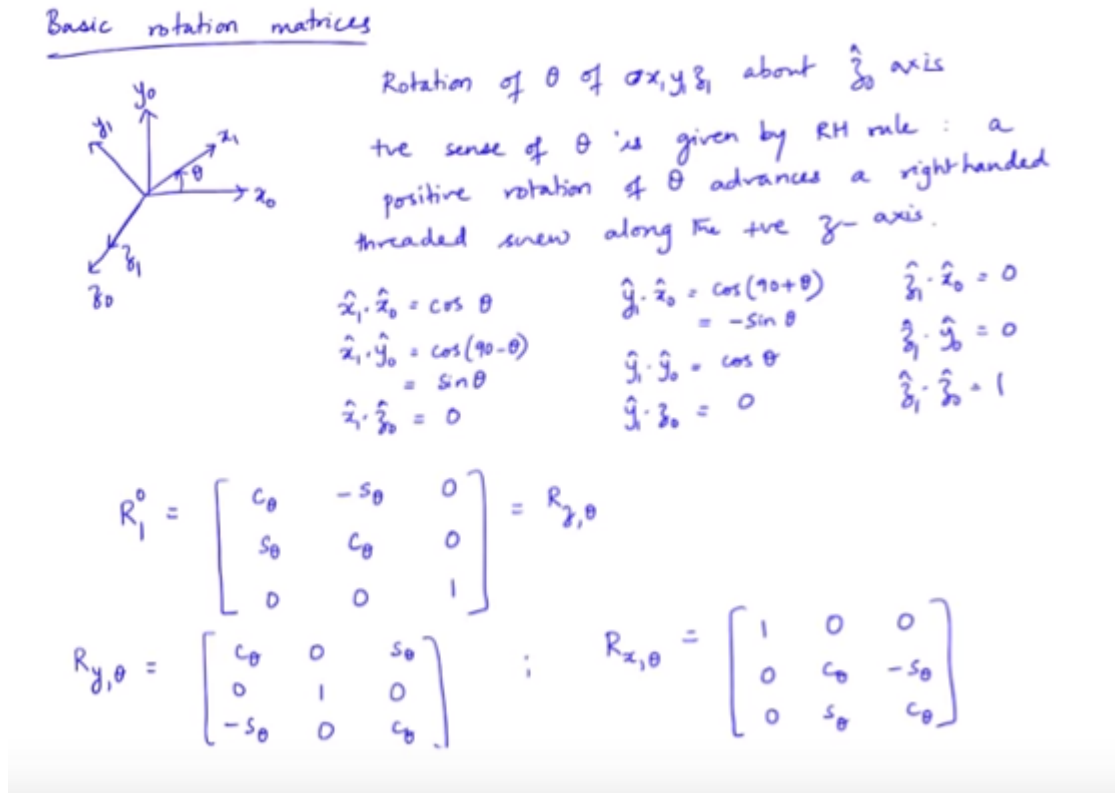 Basic rotation matrices
Rotation of θ of ox₁y₁z₁ about ẑ₀ axis
+ve sense of θ is given by RH rule : a
positive rotation of θ advances a right handed
threaded screw along the +ve z- axis.
y₀
y₁
x₁
θ
x₀
z₁
z₀
x̂₁·x̂₀ = cos θ
x̂₁·ŷ₀ = cos(90-θ)
= sinθ
x̂₁·ẑ₀ = 0
ŷ₁·x̂₀ = cos(90+θ)
= -sin θ
ŷ₁·ŷ₀ = cos θ
ŷ₁·z₀ = 0
ẑ₁·x̂₀ = 0
ẑ₁·ŷ₀ = 0
ẑ₁·ẑ₀ = 1
R₁⁰ = [ cθ -sθ 0 ] = R z,θ
sθ cθ 0
0 0 1
R y,θ = [ cθ 0 sθ ] ;
0 1 0
-sθ 0 cθ
R x,θ = [ 1 0 0 ]
0 cθ -sθ
0 sθ cθ